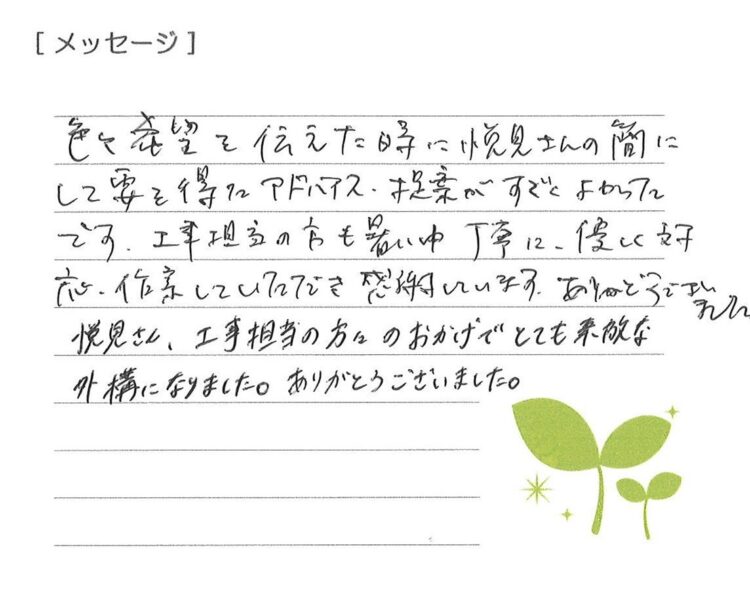 [ メッセージ ]
色々希望を伝えた時に悦見さんの簡に
して要を得たアドバイス・提案がすごくよかった
です。工事担当の方も暑い中 丁寧に、優しく対
応・作業していただき感謝しています。ありがとうござい
ました
悦見さん、工事担当の方々のおかげでとても素敵な
外構になりました。ありがとうございました。